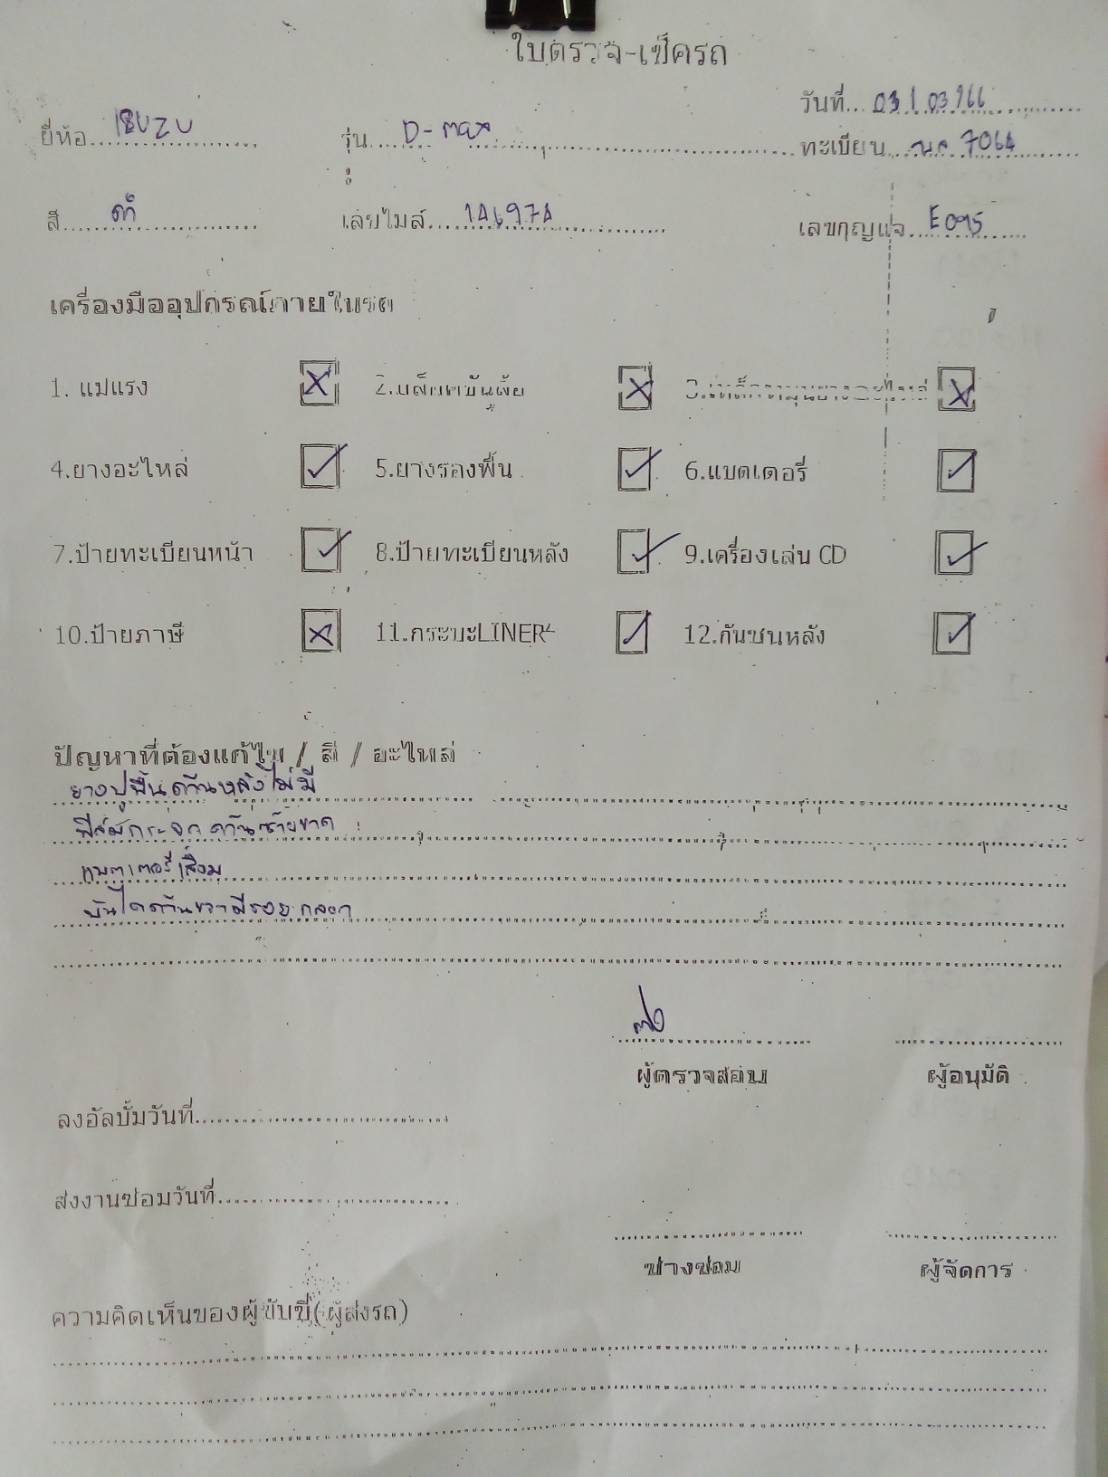 ใบตรวจ-เช็ครถ
วันที่... 03/03/66
ยี่ห้อ... ISUZU รุ่น... D-max ทะเบียน... 7064
สี... ดำ เลขไมล์... เลขกุญแจ... E095
เครื่องมืออุปกรณ์ภายในรถ
1. แม่แรง ☒ 2. ☒ 3. ☒
4.ยางอะไหล่ ☑ 5.ยางรองพื้น ☑ 6.แบตเตอรี่ ☑
7.ป้ายทะเบียนหน้า ☑ 8.ป้ายทะเบียนหลัง ☑ 9.เครื่องเล่น CD ☑
10.ป้ายภาษี ☒ 11.กระบะLINER ☑ 12.กันชนหลัง ☑
ปัญหาที่ต้องแก้ไข / สี / อะไหล่
ยางปูพื้นด้านหลังไม่มี
ฟิล์มกระจกด้านซ้ายขาด
แบตเตอรี่เสื่อม
บันไดด้านขวามีรอยถลอก
ผู้ตรวจสอบ ผู้อนุมัติ
ลงอัลบั้มวันที่...
ส่งงานซ่อมวันที่...
ช่างซ่อม ผู้จัดการ
ความคิดเห็นของผู้ขับขี่(ผู้ส่งรถ)